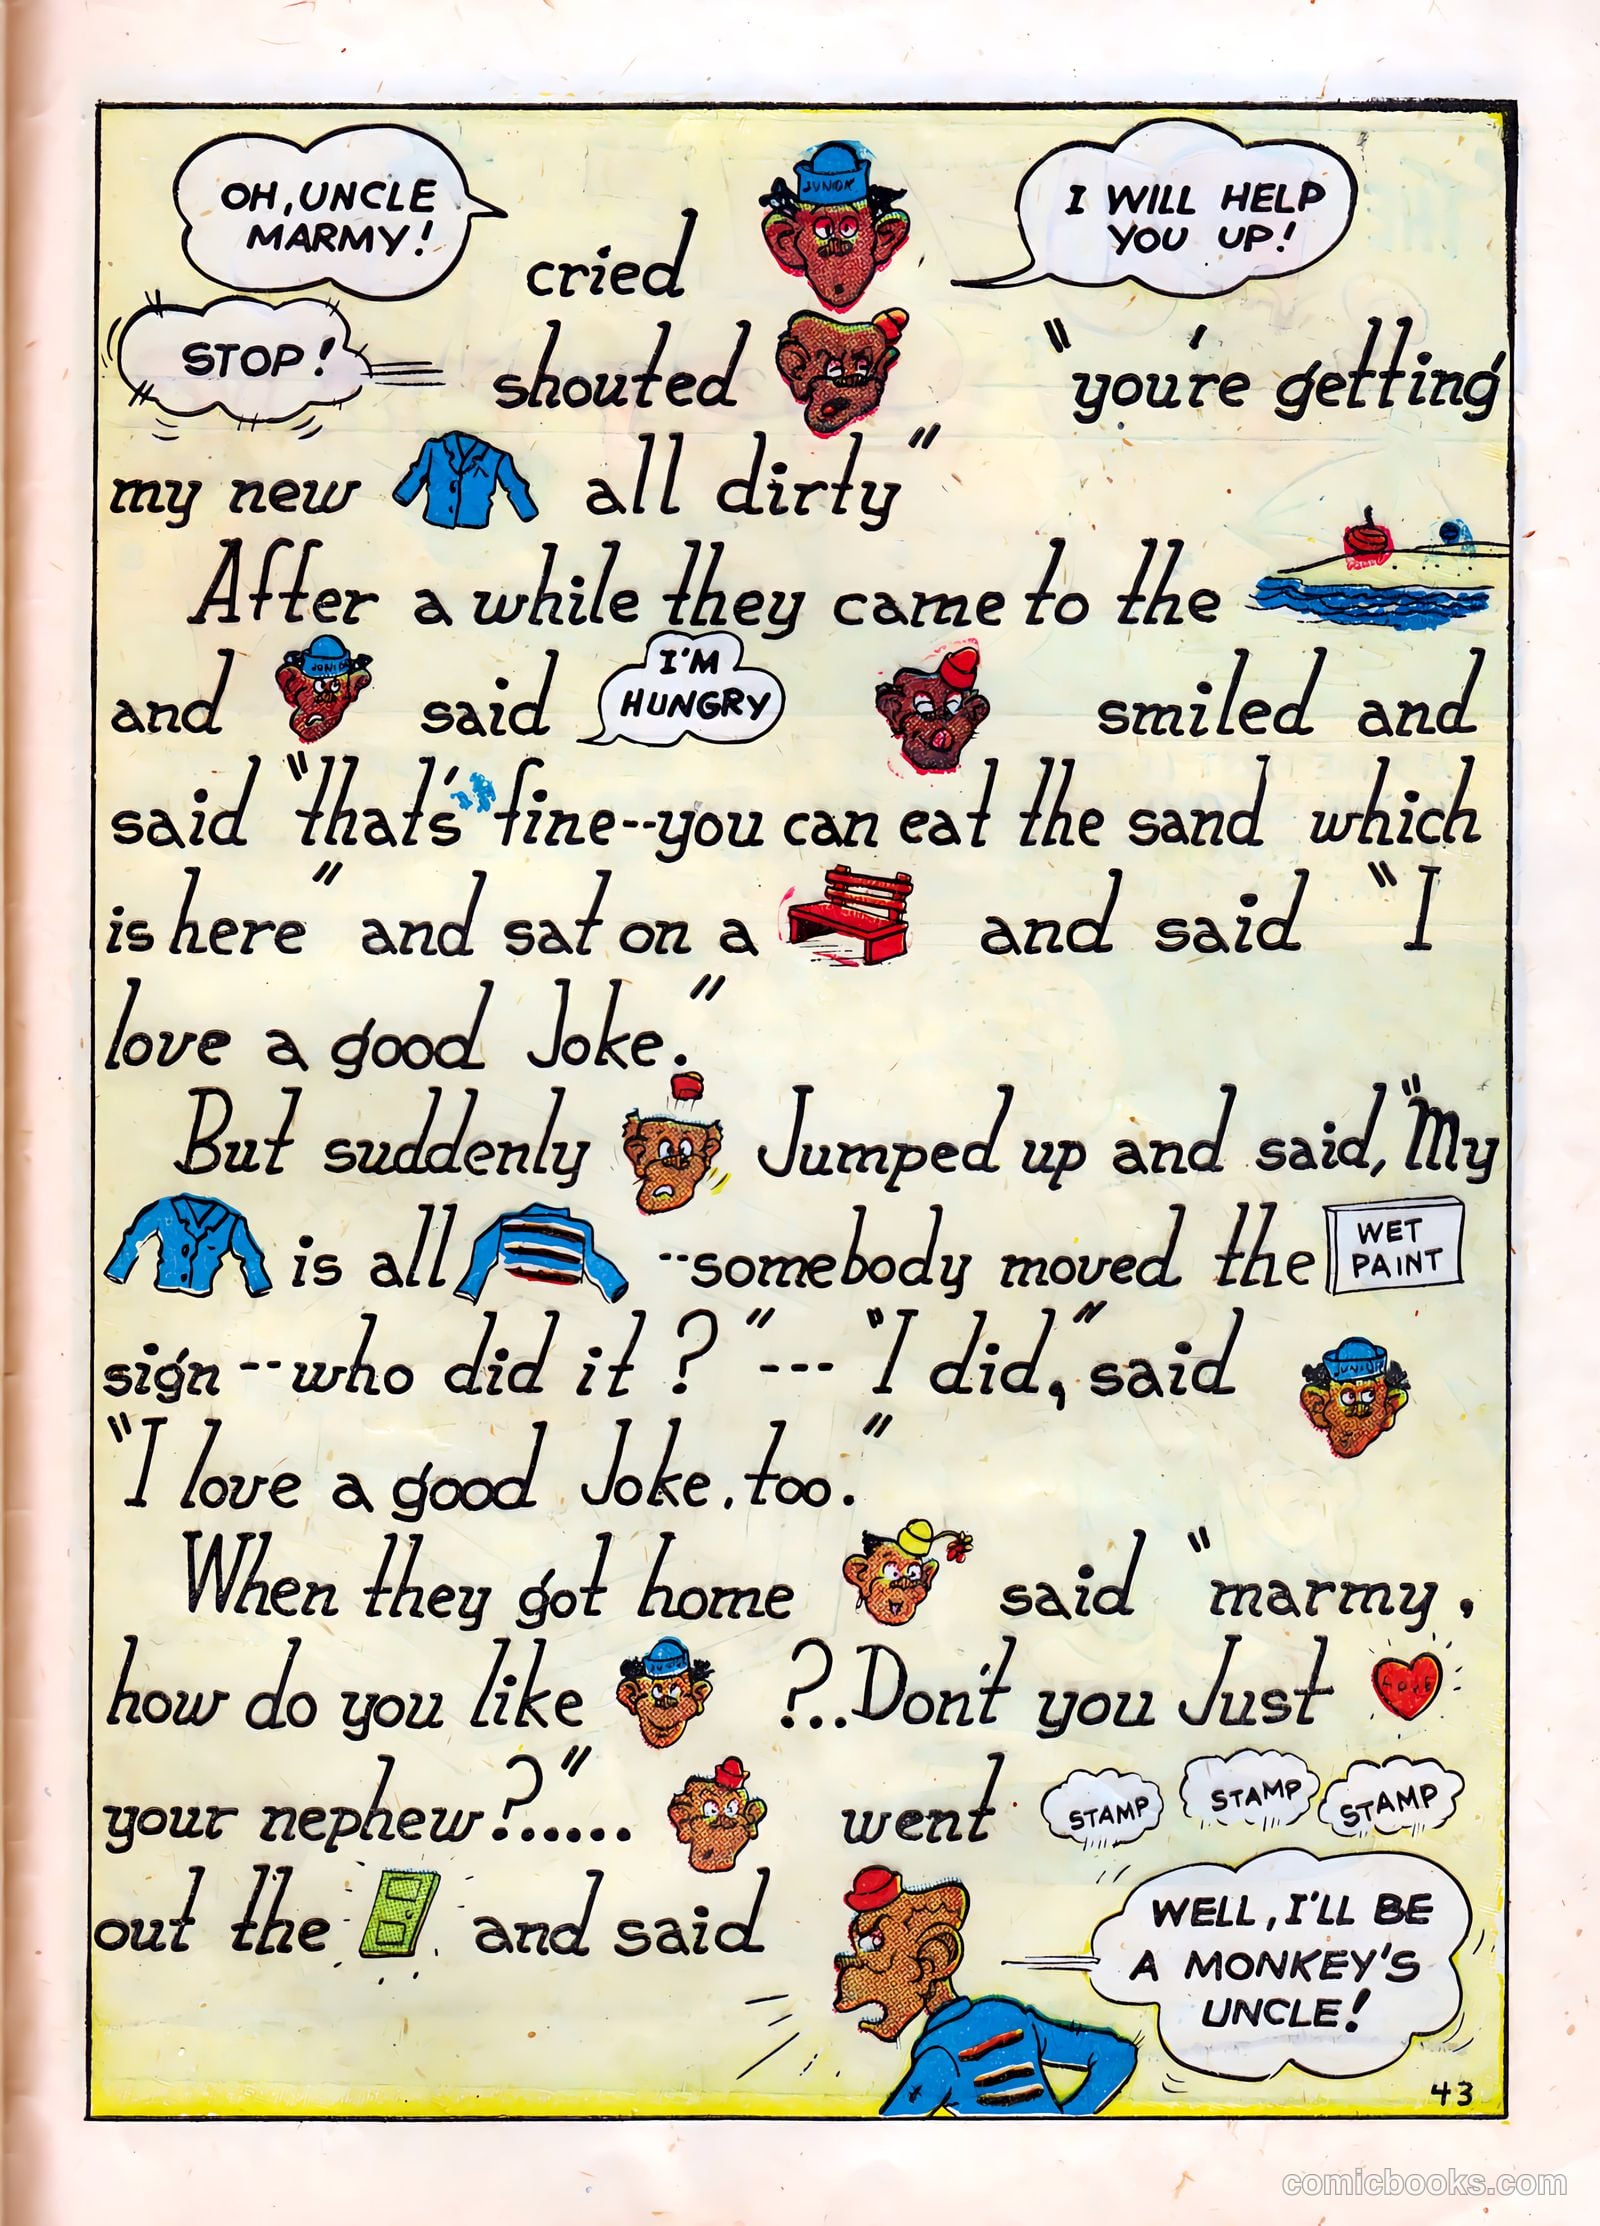 OH, UNCLE
MARMY!
cried
JUNIOR
I WILL HELP
YOU UP!
STOP!
shouted
"you're getting
my new
all dirty"
After a while they came to the
and
JUNIOR
said
I'M
HUNGRY
smiled and
said "that's fine--you can eat the sand which
is here" and sat on a
and said "I
love a good Joke."
But suddenly
Jumped up and said, "My
is all
--somebody moved the
WET
PAINT
sign--who did it?"---"I did," said
JUNIOR
"I love a good Joke, too."
When they got home
said "marmy,
how do you like
JUNIOR
?..Don't you Just
LOVE
your nephew?"......
went
STAMP
STAMP
STAMP
out the
and said
WELL, I'LL BE
A MONKEY'S
UNCLE!
43
comicbooks.com